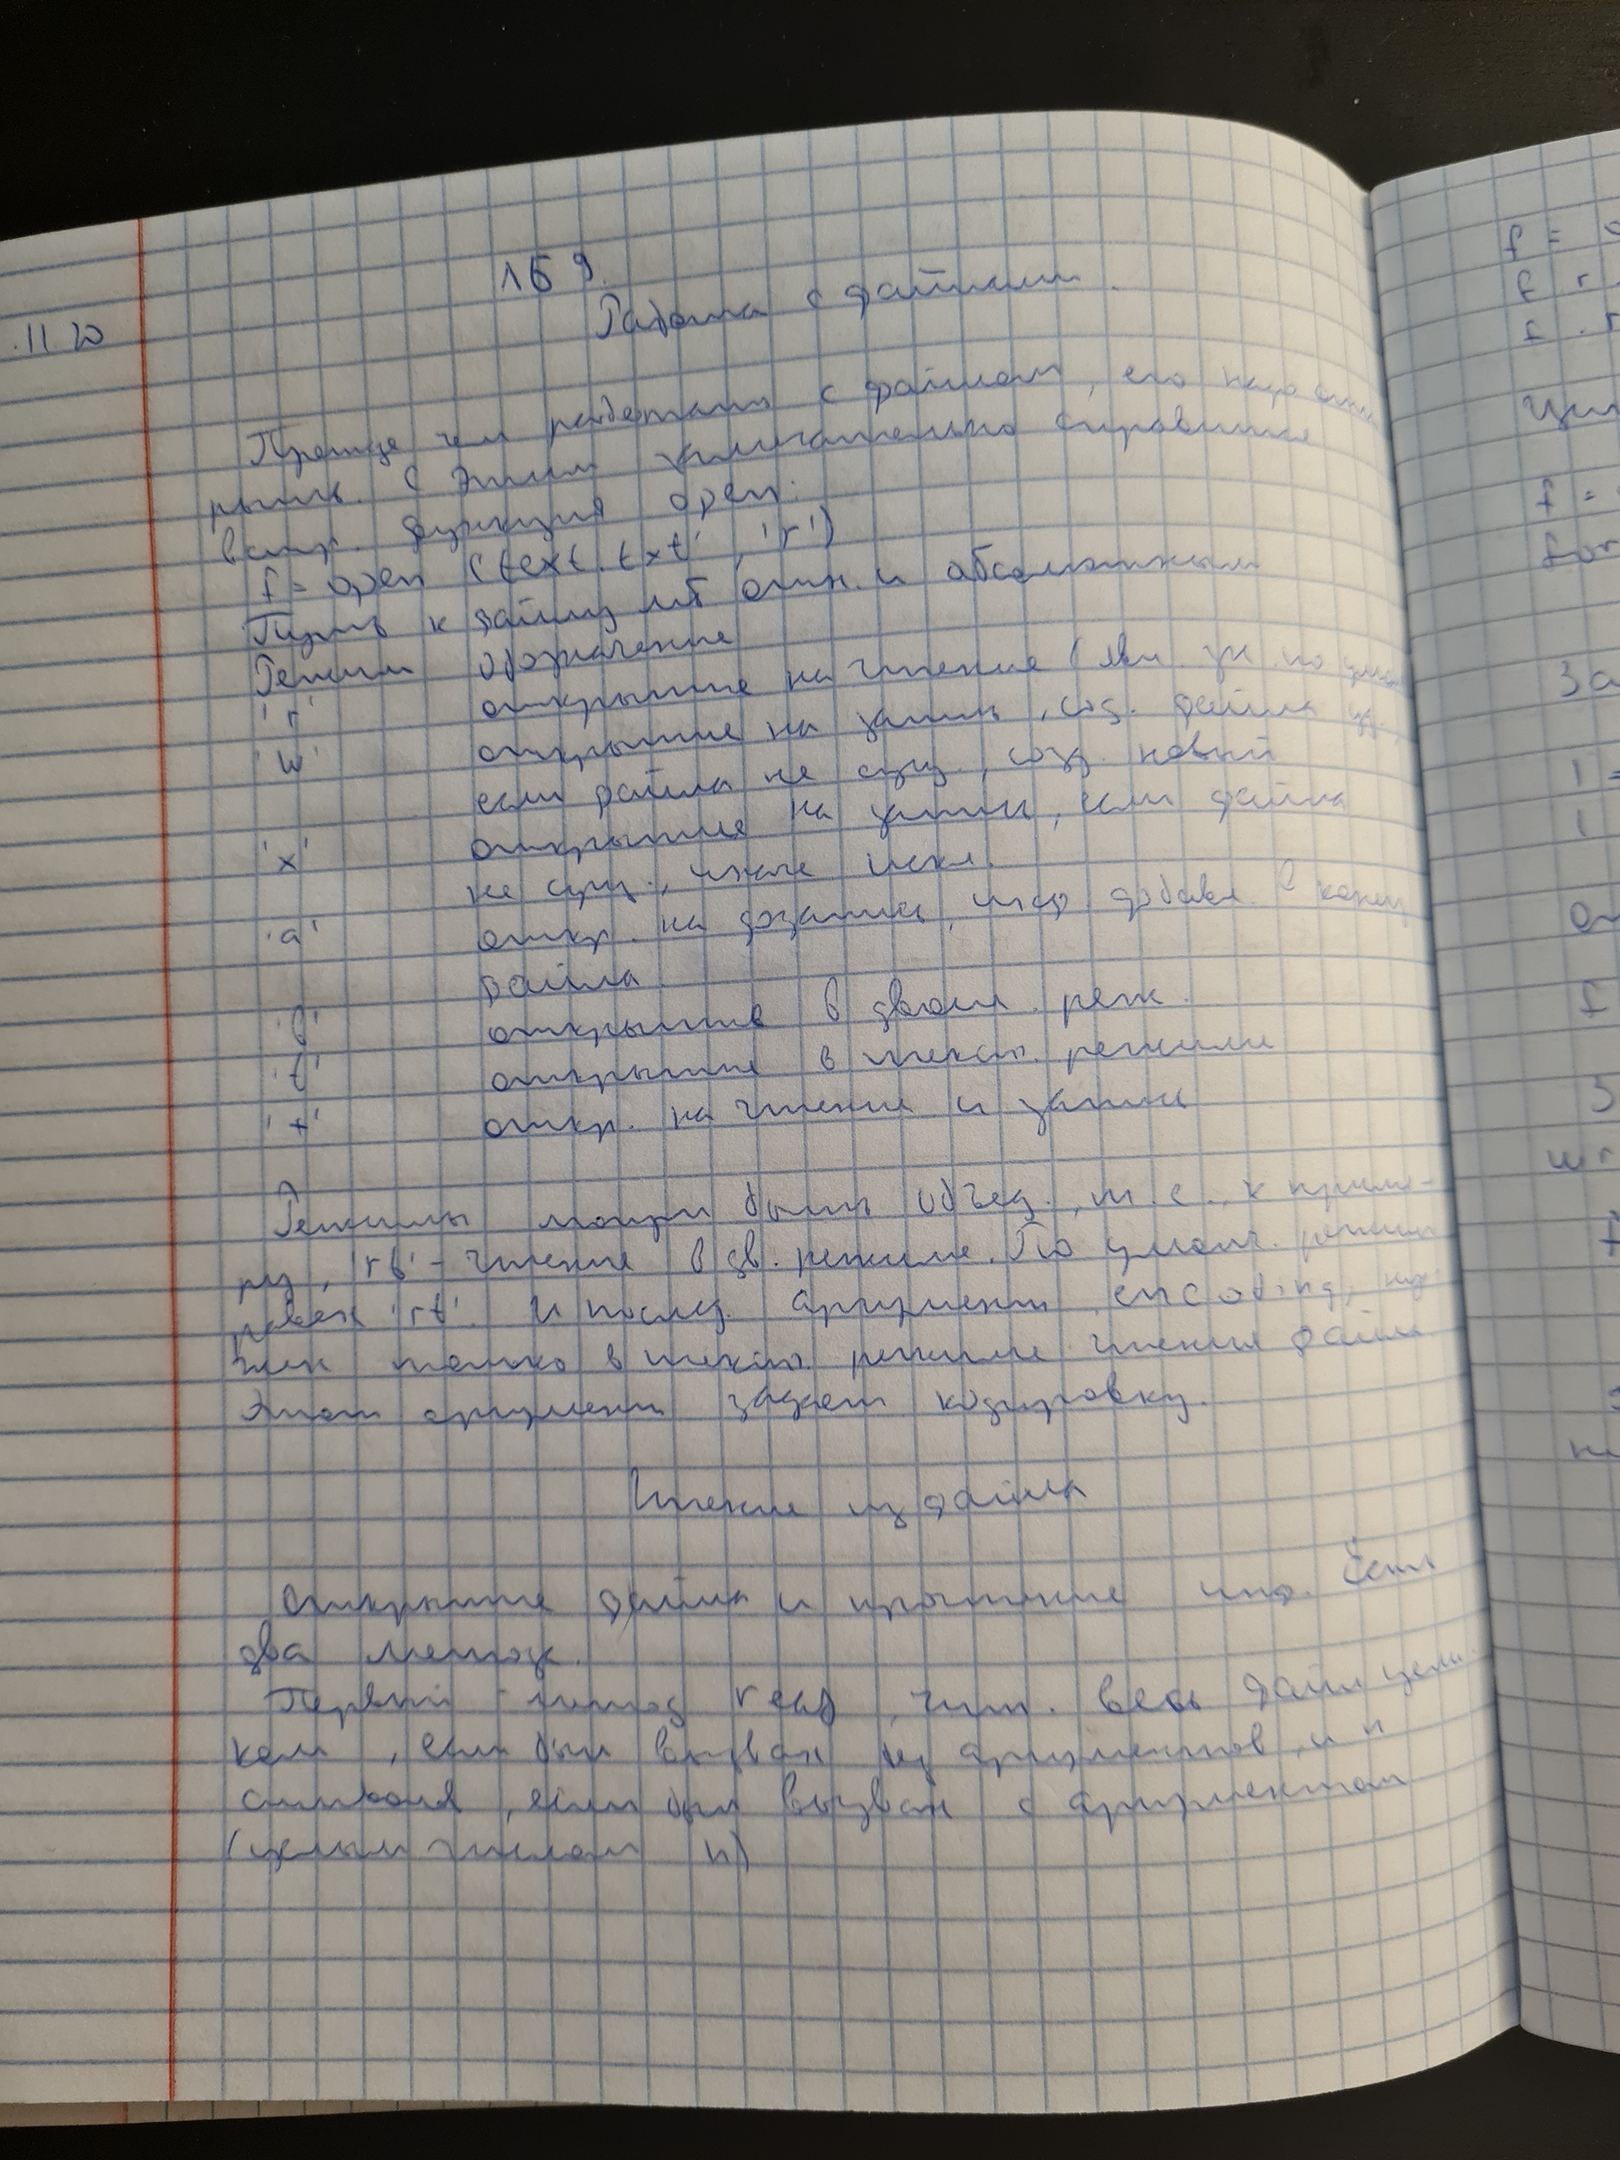 .11.20
ЛБ 9.
Работа с файлами.
Прежде чем работать с файлом, его надо отк
рыть. С этим замечательно справится
встр. функция open:
f = open ('text.txt', 'r')
Путь к файлу мб отн. и абсолютным
Режим обозначение
'r' открытие на чтение (явл. зн. по умол
'w' открытие на запись, сод. файла уд.,
если файла не сущ., созд. новый
'x' открытие на запись, если файла
не сущ., иначе искл.
'a' откр. на дозапись, инф. добавл. в конец
файла
'b' открытие в двоич. реж.
't' открытие в текст. режиме
'+' откр. на чтение и запись
Режимы могут быть объед., т.е., к приме-
ру, 'rb' - чтение в дв. режиме. По умолч. режим
равен 'rt'. И послед. аргумент, encoding, ну-
жен только в текст. режиме чтения файла.
Этот аргумент задает кодировку.
Чтение из файла
Открытие файла и прочтение инф. Есть
два метода.
Первый - метод read, чит. весь файл цели-
ком, если был вызван аргументов, и n
символов, если был вызван с аргументом
(целым числом n)
f =
f . r
f . r
f =
for
за
1 =
1
f